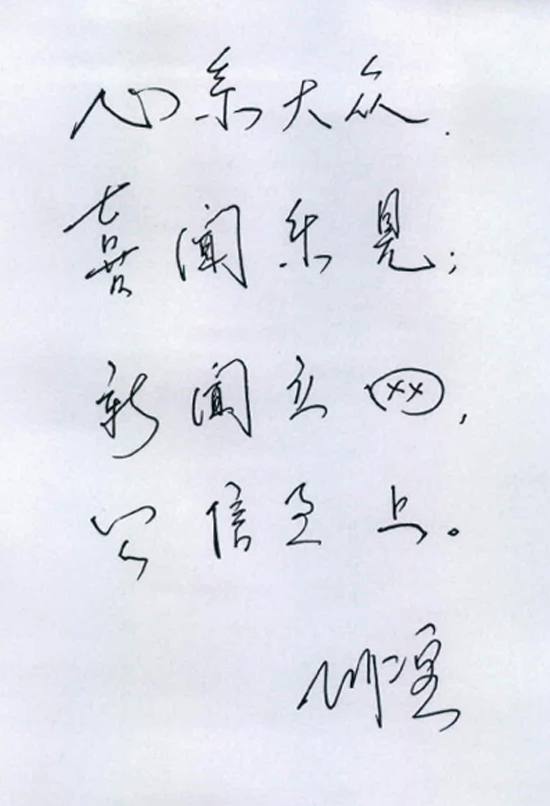 心系大众，
喜闻乐见；
新闻立网，
公信至上。